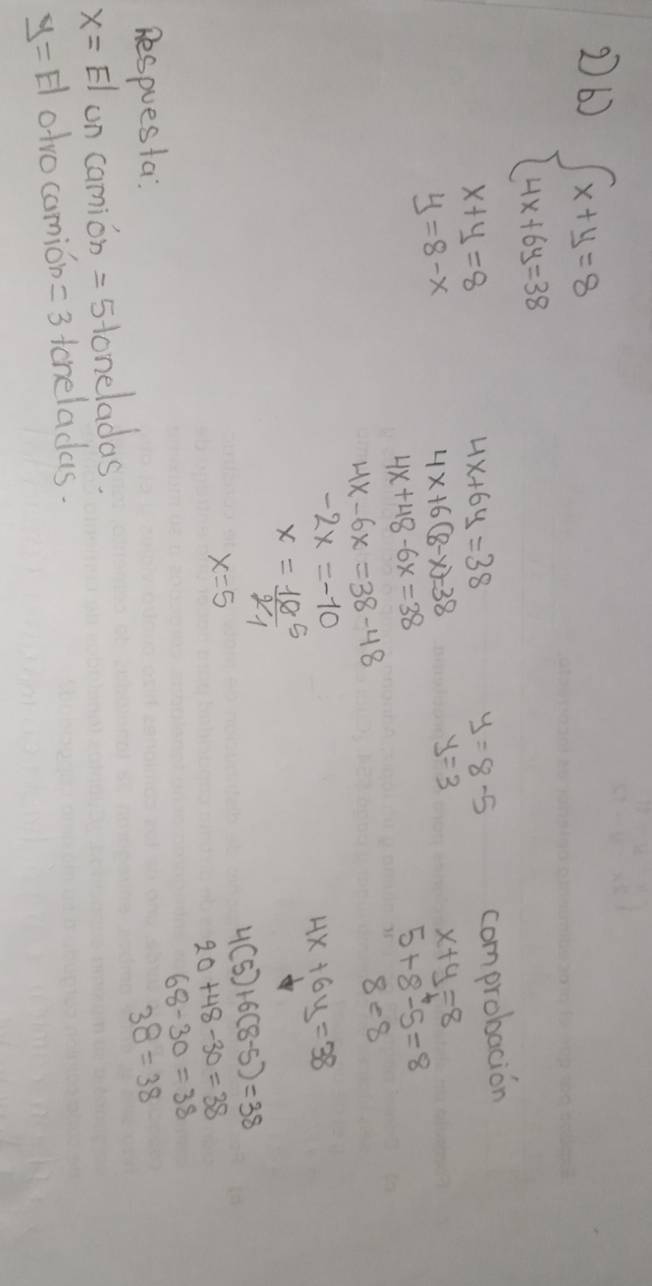 2) b) { x + y = 8
4x + 6y = 38
x + y = 8
y = 8 - x
4x + 6y = 38
4x + 6(8 - x) = 38
4x + 48 - 6x = 38
4x - 6x = 38 - 48
-2x = -10
x = 10 5
2 1
x = 5
y = 8 - 5
y = 3
Comprobación
x + y = 8
5 + 8 - 5 = 8
8 = 8
4x + 6y = 38
4(5) + 6(8 - 5) = 38
20 + 48 - 30 = 38
68 - 30 = 38
38 = 38
Respuesta:
x = El un camión = 5 toneladas.
y = El otro camión = 3 toneladas.